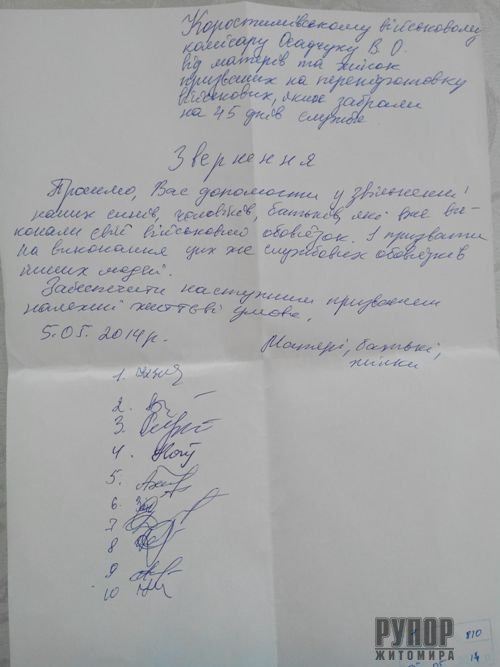 Коростишівському військовому
комісару Осадчуку В О.
від матерів та жінок
призваних на перепідготовку
військових, яких забрали
на 45 днів служби
Звернення
Просимо, Вас допомогти у звільненні
наших синів, чоловіків, батьків, які вже ви-
конали свій військовий обов'язок. І призвати
на виконання цих же службових обов'язків
інших людей.
Забезпечити наступним призваним
належні життєві умови.
5.05.2014 р.
Матері, батьки,
жінки
1.
2.
3.
4.
5.
6
7
8
9
10
РУПОР
ЖИТОМИРА
810
14